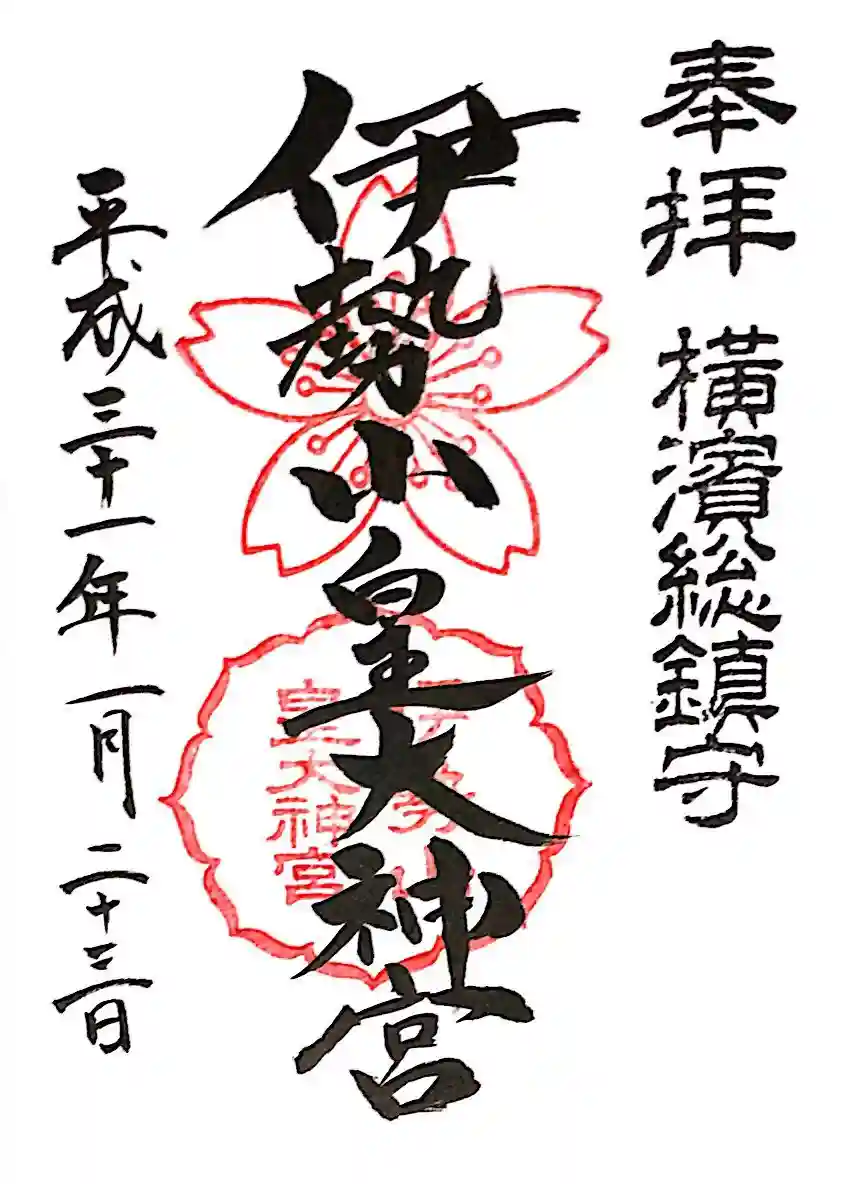 奉拝 横濱総鎮守
伊勢山皇大神宮
伊勢山
皇大神宮
平成三十一年一月二十三日